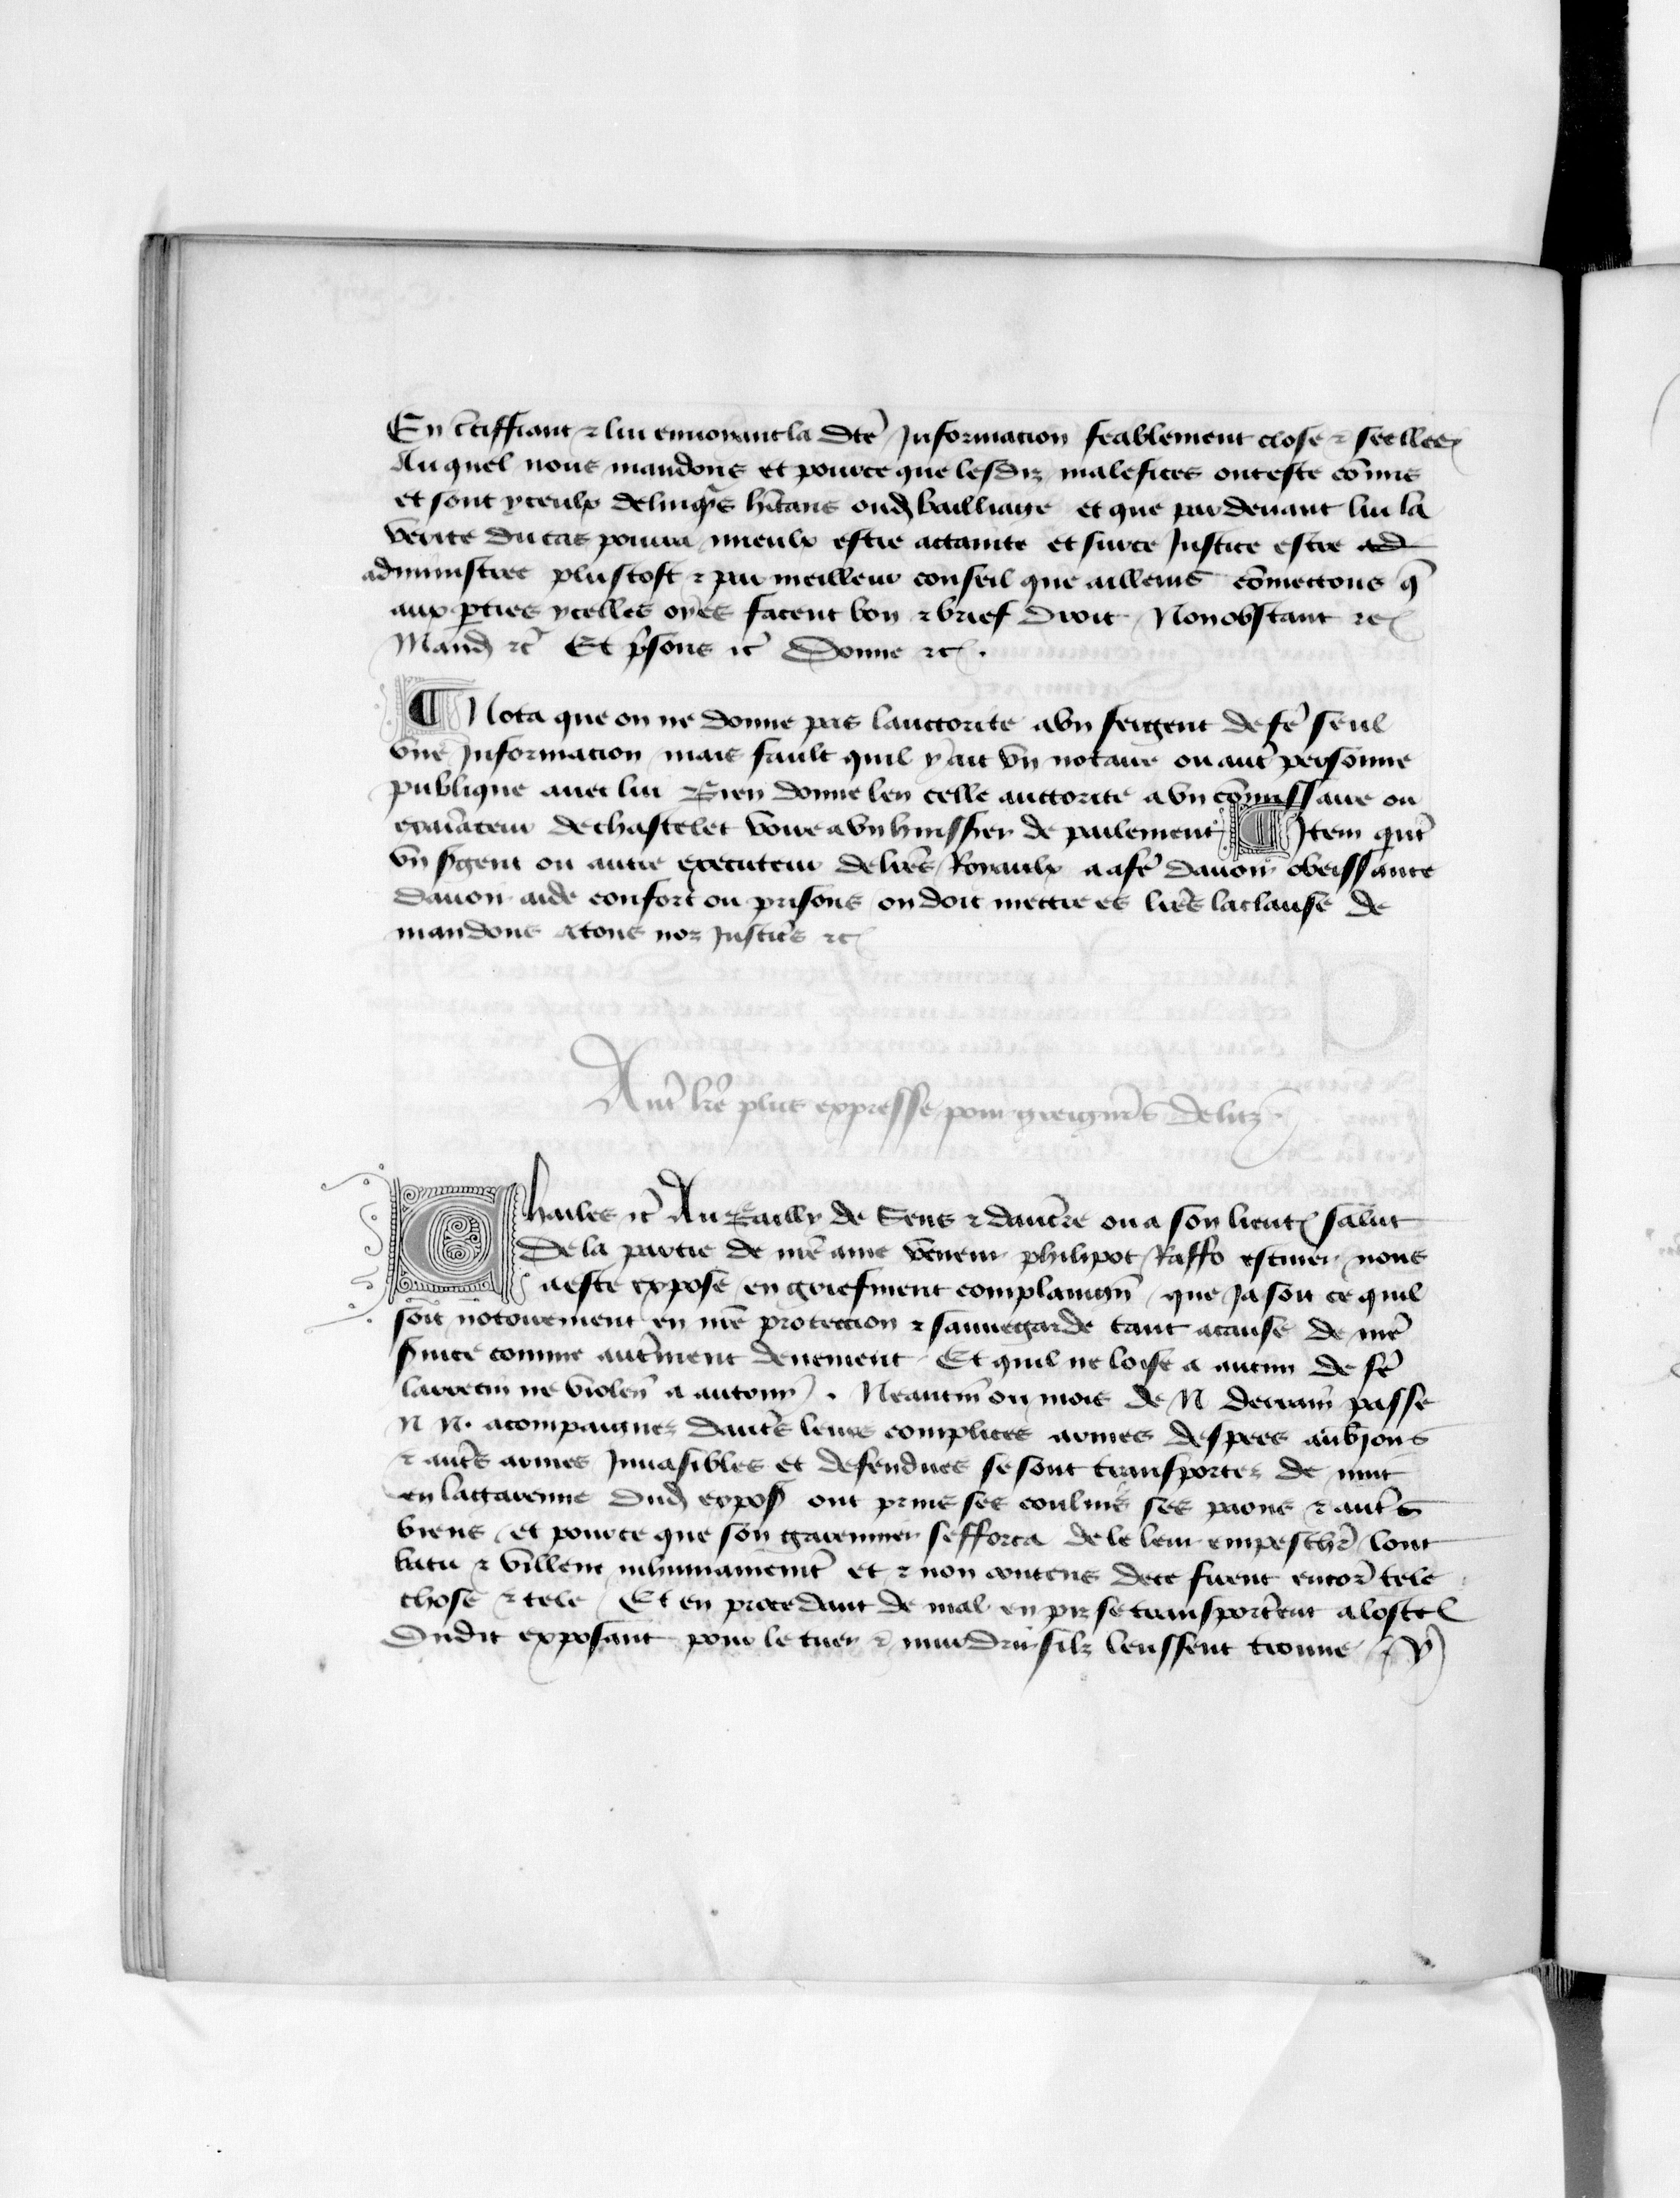 En c̄tiffiant ⁊ lui enuoyant la dc̄e Informacion feablement close ⁊ seellee
Auquel nous mandons et pource que lesdiz malefices ont este co̅mis
et sont yceulx delinqͣs hītans oud̄ bailliage et que par deuant lui la
verite du cas pourra mieulx estre actainte et surce Justice estre ad
administree plustost ⁊ par meilleur conseil que ailleurs co̅mectons q̄
aux p̄ties ycelles oyes facent bon ⁊ brief droit Nonobstant ⁊c̄
Mand̄ ⁊c̄ Et p̄sons ⁊c̄ Donne ⁊c̄.
¶ Nota que on ne donne pas lauctorite a vn sergent de fe̅ seul
vne Informacion mais fault quil y ait vn notaire ou aut̄ personne
publique auec lui ⁊ Bien donne len celle auctorite a vn co̅missaire ou
exāīateur de chastelet voire a vn huissier de parlement ¶ Item qn̄t
vn s̄gent ou autre executeur de lr̄es Royaulx a afe̅ dauoir obeissance
dauoir aide confort ou prisons on doit mettre es lr̄es la clause de
mandons a tous noz Justic̄s ⁊c̄
Aut̄ lr̄e plus expresse pour greign̄rs delitz.
Charles ⁊c̄ Au Bailly de Sens ⁊ dauc̄re ou a son lieut̄ salut
De la partie de nr̄e ame veneur philipot Raffo escuier nous
a este expose en griefment complaign̄ que Ja soit ce quil
soit notoirement en nr̄e proteccion ⁊ sauuegarde tant a cause de nr̄e
s̄uice comme aut̄ment deuement Et quil ne loise a aucun de fe̅
larrecin ne violen̄ a autruy. Neantm̄ ou mois de N derrain̄ passe
N N. acompaignez daut̄s leurs complices armes despees aubjons
⁊ aut̄s armes Inuasibles et defendues se sont transportez de nuit
en la garenne dud̄ expos̄ ont prins ses conlins ses paons ⁊ aut̄s
biens et pource que son garennier sefforca de le leur empesch̄ lont
batu ⁊ villene inhumainement̄ et ⁊ non contens de ce firent encor̄ tele
chose ⁊ tele Et en procedant de mal en piz se transport̄ent a lostel
Dudit exposant pour le tuer ⁊ murdrir silz leussent trouue